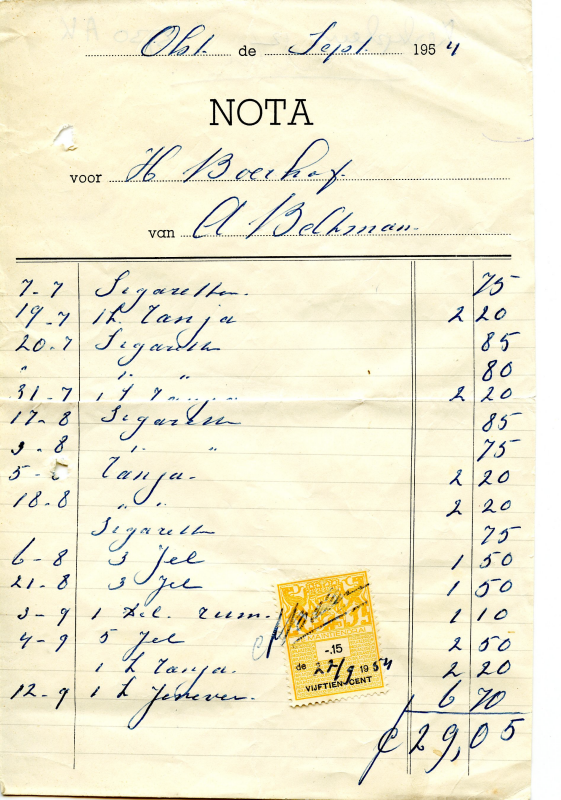 Olst. de Sept. 1954
NOTA
voor H Boerhof.
van A Beltman.
7-7 Sigaretten. 75
19-7 1 L. Tanja 2 20
20-7 Sigaretten 85
" " " 80
31-7 1 L Tanja 2 20
17-8 Sigaretten 85
3-8 " " 75
5- Tanja. 2 20
18-8 " " 2 20
Sigaretten 75
6-8 3 Jel 1 50
21-8 3 Jel 1 50
3-9 1 rum. 1 10
4-9 5 Jel 2 50
1 L Tanja. 2 20
12-9 1 L Jenever. 6 70
ƒ 29,05
-.15
de 22/9 1954
VIJFTIEN CENT